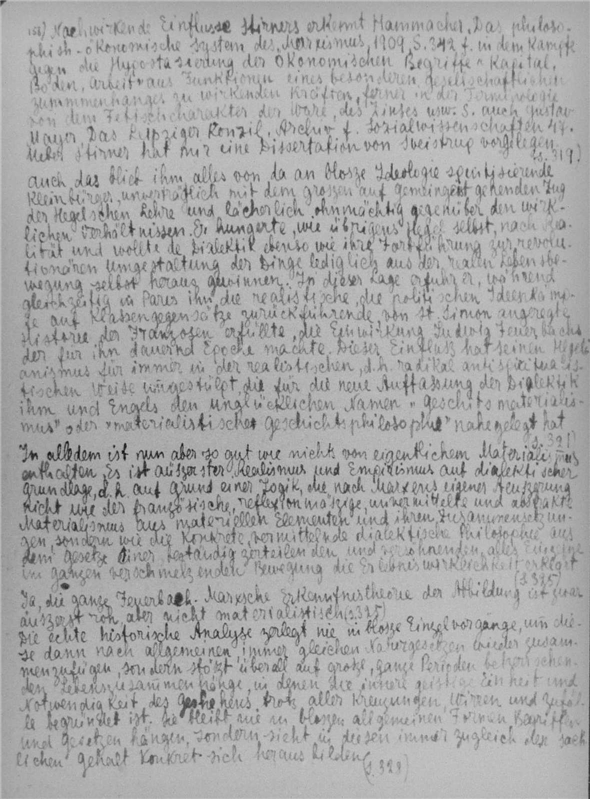 158) Nachwirkende Einflusse Stirners erkennt Hammacher, Das philoso-
phish-ökonomische System des Marxismus, 1909, S. 342 f. in dem Kampfe
gegen die Hypostasierung der Okonomischen Begriffe "Kapital,
Boden, Arbeit" aus Funktionen eines besonderen gesellschaftlichen
zusammenhanges zu wirkenden Kräften, ferner in der Terminologie
von dem Fetischcharakter der Ware, des Zinses usw. S. auch Gustav
Mayer, Das Leipziger Konzil, Archiv f. Sozialwissenschaften 47.
Über Stirner hat mir eine Dissertation von Sveistrup vorgelegen.
(S. 319)
Auch das blieb ihm alles von da an blosze Ideologie spintisierende
Kleinbürger, unverträglich mit dem groszen auf gehenden Zug
der Hegelschen Lehre und lächerlich ohnmächtig gegenüber den wirk-
lichen verhältnissen. Er hungerte, wie übrigens Hegel selbst, nach Rea-
lität und wollte de Dialektik ebenso wie ihre Fortführung zur revolu-
tionären umgestaltung der Dinge lediglich aus der realen Lebensbe-
wegung selbst heraus gewinnen. In dieser Lage erfuhr er, während
gleichzeitig in Paris ihn die realistische, die politischen Ideenkämp-
fe auf Klassengegensätze zurückführende von St. Simon angeregte
Historie der Franzosen erfüllte, die Einwirkung Ludwig Feuerbachs
der für ihn dauernd Epoche machte. Dieser Einfluss hat seinen Hegeli
anismus für immer in der realistischen, d.h. radikal antispiritualis-
tischen Weise umgestülpt, die für die neue Auffassung der Dialektik
ihm und Engels den unglücklichen Namen "Geschichtsmaterialis-
mus" oder "materialistische Geschichtsphilosophie" nahegelegt hat
(S. 321)
In alledem ist nun aber so gut wie nichts von eigentlichem Materialismus
enthalten. Es ist auszerster Realismus und Empirismus auf dialektischer
Grundlage, d.h. auf Grund einer Logik, die nach Marxens eigener Aeuszerung
nicht wie der französische, reflexionmäszige, unvermittelte und abstrakte
Materialismus aus materiellen Elementen und ihren Zusammensetzun-
gen, sondern wie die konkrete, vermittelnde dialektische Philosophie aus
dem Gesetze einer beständig zerteilenden und versöhnenden, alles Einzelne
im ganzen verschmelzenden Bewegung die Erlebniswirklichkeit erklärt
(S. 325)
Ja, die ganze Feuerbach-Marxsche Erkenntnistheorie der Abbildung ist zwar
äuszerst roh, aber nicht materialistisch (S. 335)
Die echte historische Analyse zerlegt nie in blosze Einzelvorgänge, um die-
se dann nach allgemeinen immer gleichen Naturgesetzen wieder zusam-
menzufügen, sondern stöszt überall auf grosze, ganze Perioden beherrschen-
den Lebenszusammenhänge, in denen die innere geistige Einheit und
Notwendigkeit des geschehens trotz aller kreuzungen, Wirren und Zufäl-
le begründet ist. Sie bleibt nie in bloszen allgemeinen Formen Begriffen
und Gesetzen hängen, sondern sieht in diesen immer zugleich den sach
lichen gehalt konkret sich heraus bilden
(S. 328)